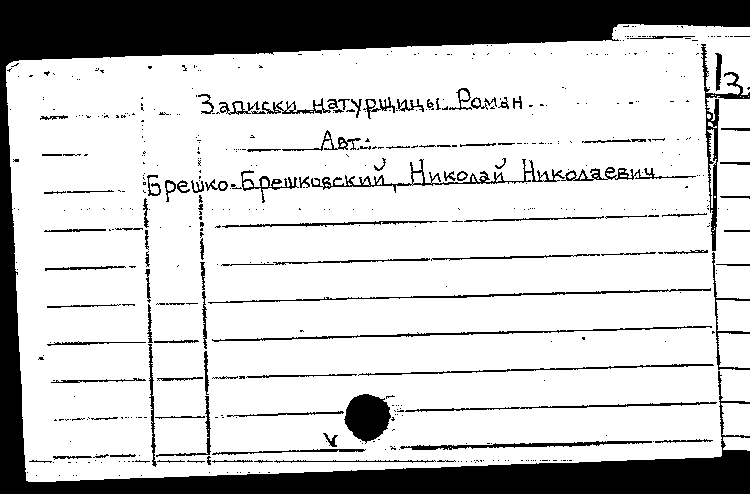 Записки натурщицы. Роман.
Авт.:
Брешко-Брешковский, Николай Николаевич.
З